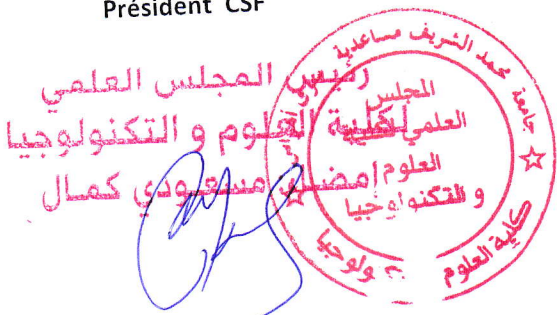 Président CSF
رئيس المجلس العلمي
لكلية العلوم و التكنولوجيا
إمضاء مسعودي كمال
جامعة محمد الشريف مساعدية
المجلس
العلمي لكلية
العلوم
و التكنولوجيا
كلية العلوم
ولوجيا